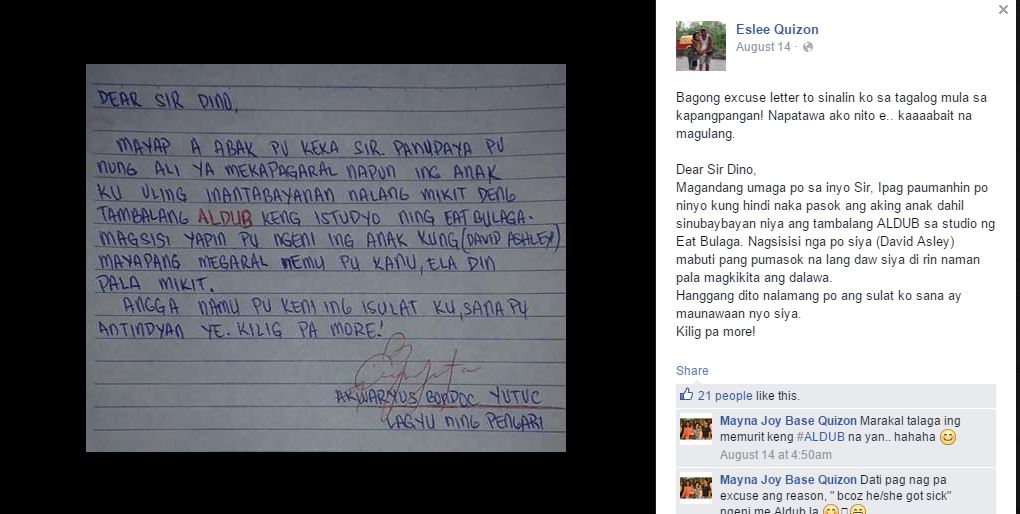 DEAR SIR DINO,
MAYAP A ABAK PU KEKA SIR. PANUPAYA PU
NUNG ALI YA MEKAPAGARAL NAPUN ING ANAK
KU ULING INANTABAYANAN NALANG MIKIT DENG
TAMBALANG ALDUB KENG ISTUDYO NING EAT BULAGA.
MAGSISI YAPIN PU NGENI ING ANAK KUNG (DAVID ASHLEY)
MAYAPANG MEGARAL NEMU PU KANU, ELA DIN
PALA MIKIT.
ANGGA NAMU PU KENI ING ISULAT KU, SANA PU
ANTINDYAN YE. KILIG PA MORE!
AKWARYUS BONDOC YUTUC
LAGYU NING PENGARI
Eslee Quizon
August 14 ·
Bagong excuse letter to sinalin ko sa tagalog mula sa
kapangpangan! Napatawa ako nito e.. kaaaabait na
magulang.
Dear Sir Dino,
Magandang umaga po sa inyo Sir, Ipag paumanhin po
ninyo kung hindi naka pasok ang aking anak dahil
sinubaybayan niya ang tambalang ALDUB sa studio ng
Eat Bulaga. Nagsisisi nga po siya (David Asley)
mabuti pang pumasok na lang daw siya di rin naman
pala magkikita ang dalawa.
Hanggang dito nalamang po ang sulat ko sana ay
maunawaan nyo siya.
Kilig pa more!
Share
21 people like this.
Mayna Joy Base Quizon Marakal talaga ing
memurit keng #ALDUB na yan.. hahaha
August 14 at 4:50am
Mayna Joy Base Quizon Dati pag nag pa
excuse ang reason, " bcoz he/she got sick"
ngeni me Aldub la